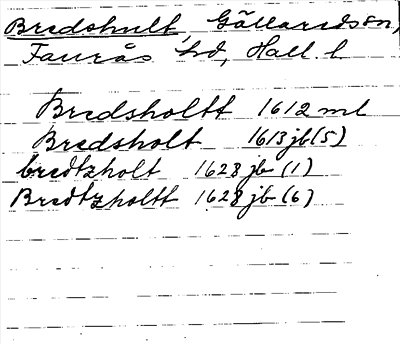 Bredshult, Gällareds sn,
Faurås hd, Hall. l.
Bredsholtt 1612 ml
Bredsholt 1613 jb (5)
bredtzholt 1628 jb (1)
Bredtzholtt 1628 jb (6)